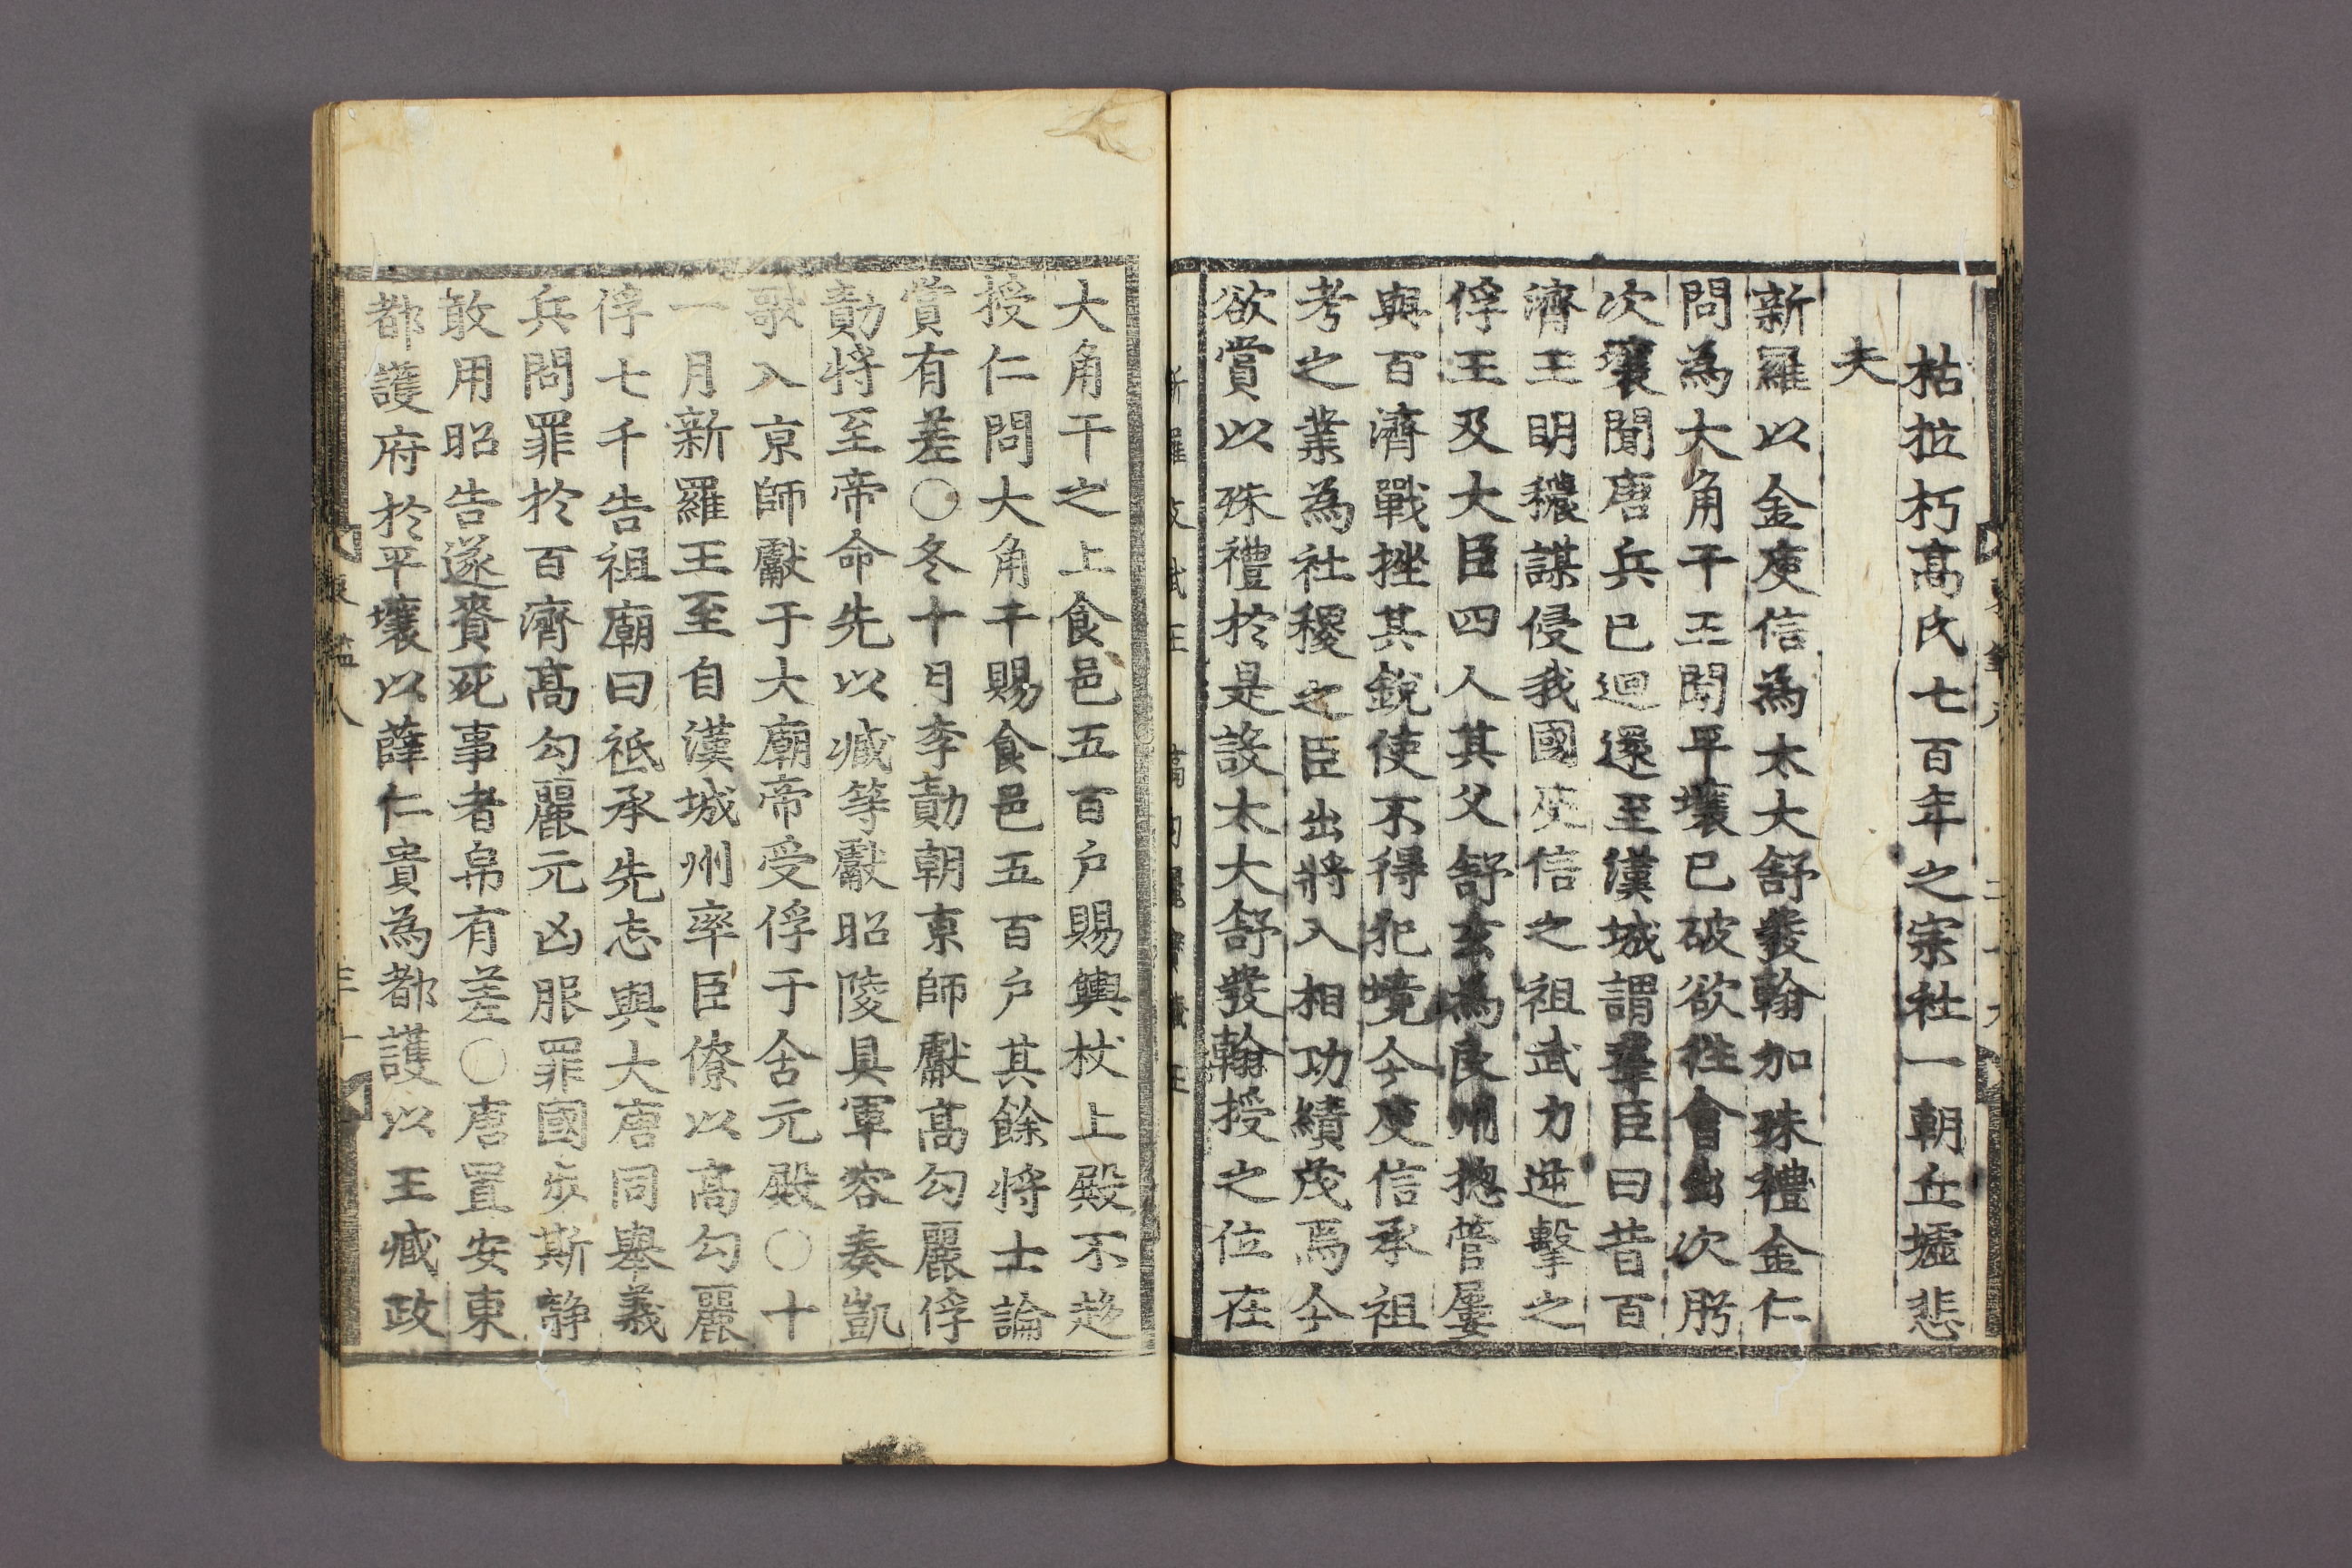 枯拉朽高氏七百年之宗社一朝丘墟悲
夫
新羅以金庾信為太大舒發翰加殊禮金仁
問為大角干王聞平壤已破欲往會出次肹
次壤聞唐兵已迴還至漢城謂羣臣曰昔百
濟王明穠謀侵我國庾信之祖武力逆擊之
俘王及大臣四人其父舒玄為良州揔管屢
與百濟戰挫其銳使不得犯境今庾信承祖
考之業為社稷之臣出將入相功績茂焉今
欲賞以殊禮於是設太大舒發翰授之位在
大角干之上食邑五百户賜輿杖上殿不趍
授仁問大角干賜食邑五百户其餘将士論
賞有差〇冬十月李勣朝京師獻高勾麗俘
勣将至帝命先以臧等獻昭陵具軍容奏凱
歌入京師獻于大廟帝受俘于含元殿〇十
一月新羅王至自漢城州率臣僚以高勾麗
俘七千告祖廟曰祗承先志與大唐同舉義
兵問罪於百濟高勾麗元凶服罪國步斯静
敢用昭告遂賚死事者帛有差〇唐置安東
都護府於平壤以薛仁貴為都護以王臧政